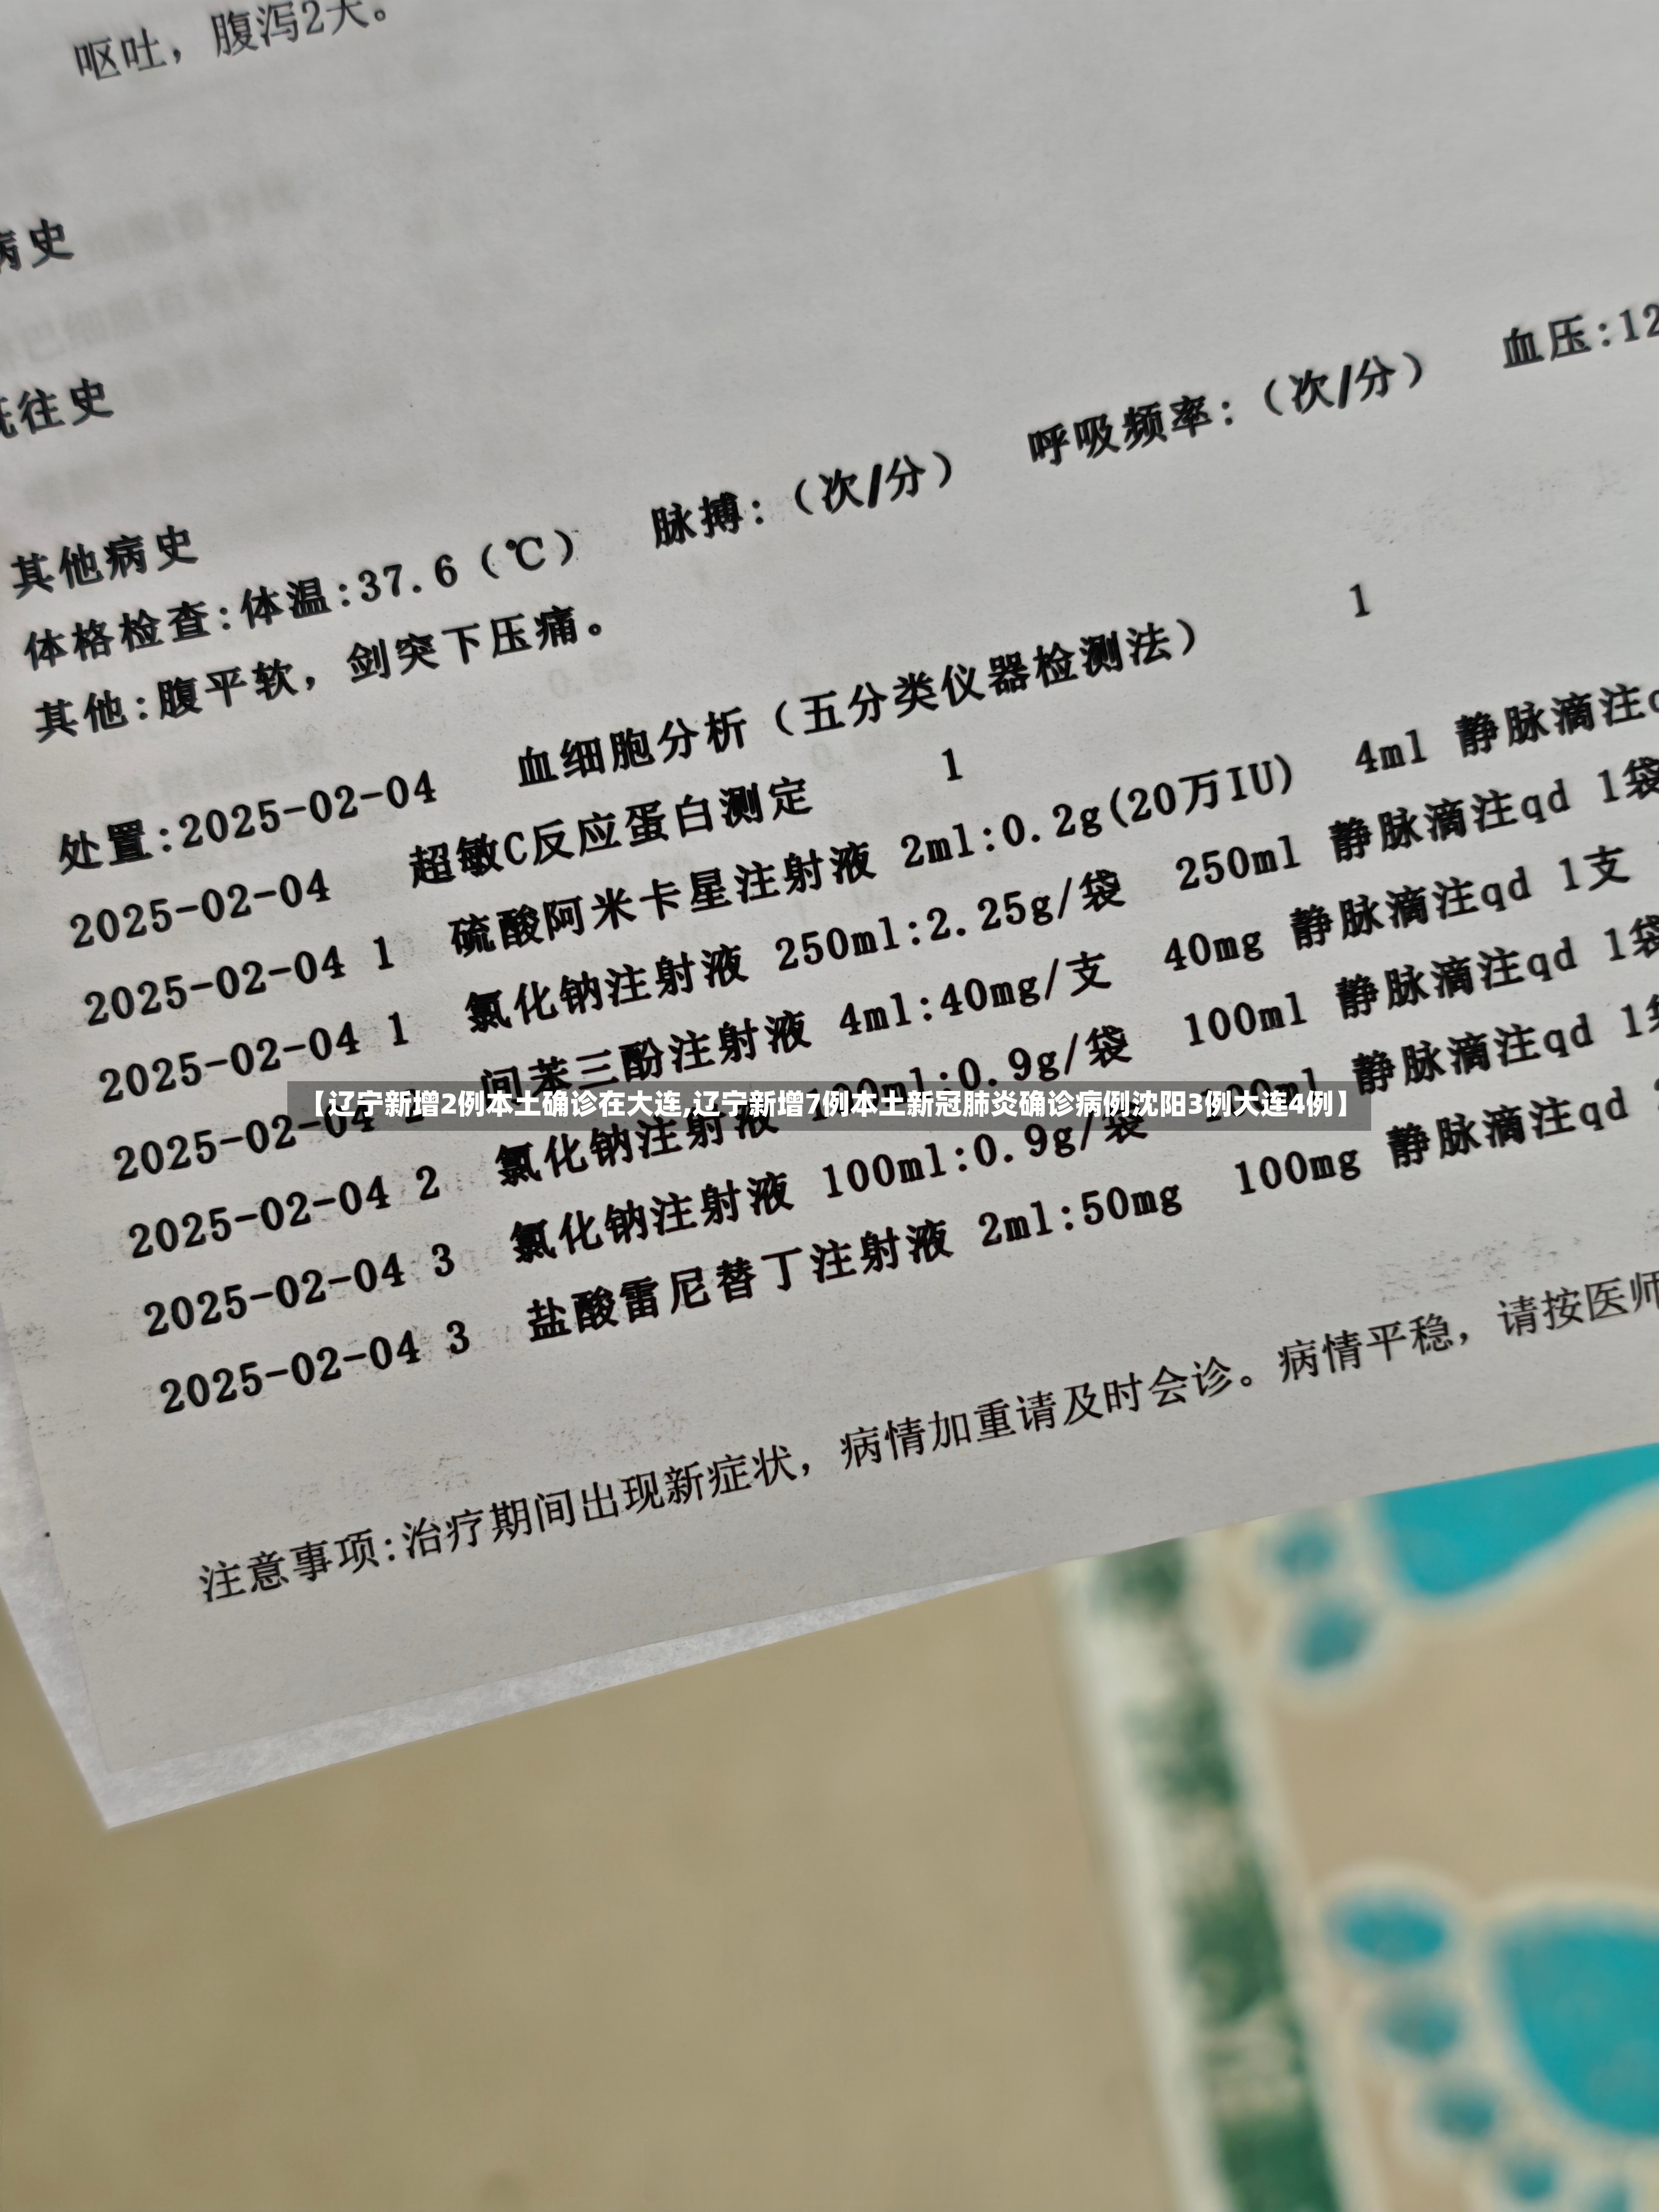 呕吐，腹泻2天。
病史
既往史
其他病史
体格检查:体温:37.6（℃） 脉搏:（次/分） 呼吸频率:（次/分） 血压:12
其他:腹平软，剑突下压痛。
处置:2025-02-04 血细胞分析（五分类仪器检测法） 1
2025-02-04 超敏C反应蛋白测定 1
2025-02-04 1 硫酸阿米卡星注射液 2ml:0.2g(20万IU) 4ml 静脉滴注q
2025-02-04 1 氯化钠注射液 250ml:2.25g/袋 250ml 静脉滴注qd 1袋
2025-02-04 2 间苯三酚注射液 4ml:40mg/支 40mg 静脉滴注qd 1支
【辽宁新增2例本土确诊在大连,辽宁新增7例本土新冠肺炎确诊病例沈阳3例大连4例】
2025-02-04 2 氯化钠注射液 100ml:0.9g/袋 100ml 静脉滴注qd 1袋
2025-02-04 3 氯化钠注射液 100ml:0.9g/袋 100ml 静脉滴注qd 1袋
2025-02-04 3 盐酸雷尼替丁注射液 2ml:50mg 100mg 静脉滴注qd
注意事项:治疗期间出现新症状，病情加重请及时会诊。病情平稳，请按医师